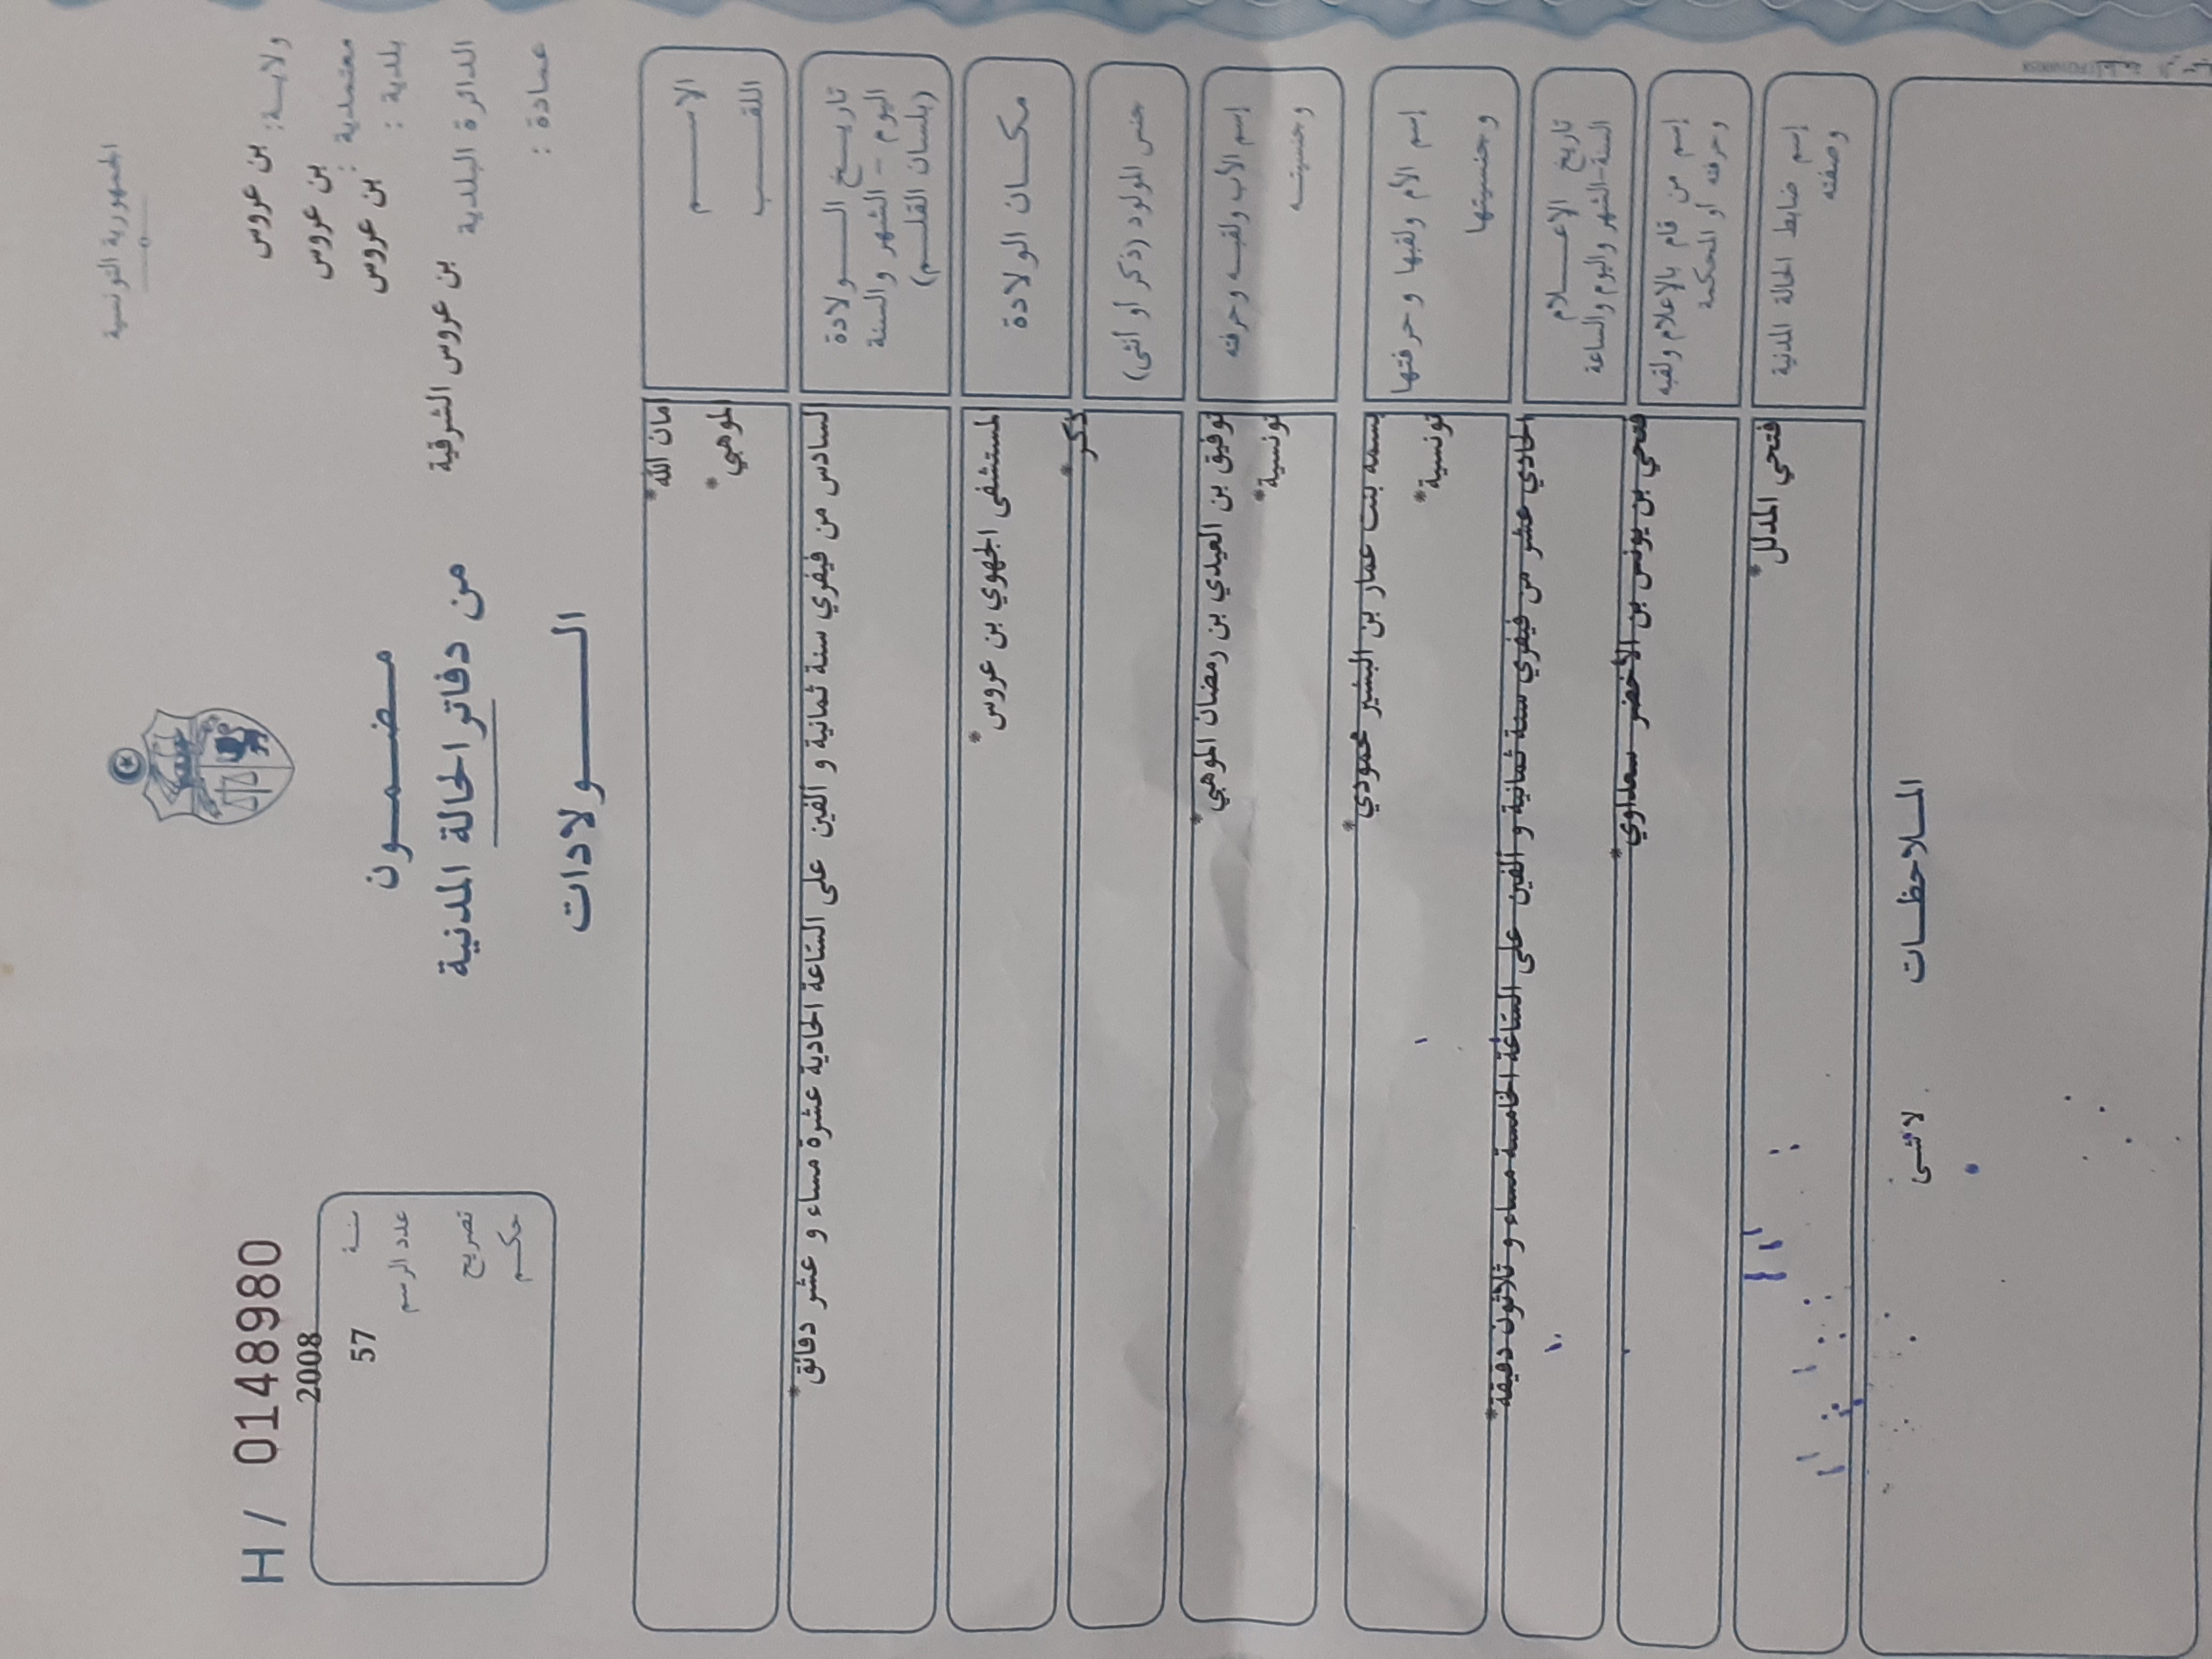 الجمهورية التونسية
ولايـــة: بن عروس
معتمدية : بن عروس
بلدية : بن عروس
الدائرة البلدية بن عروس الشرقية
عمادة :
مـضـمـــون
من دفاتر الحالة المدنية
الـــــولادات
H / 0148980
سنـــة 2008
عدد الرسم 57
تصريح
حكــم
الاســــــم امان الله*
اللقـــــب الموهبي*
تاريـــخ الــــولادة السادس من فيفري سنة ثمانية و الفين على الساعة الحادية عشرة مساء و عشر دقائق*
اليوم - الشهر والسنة
(بلسان القلـــم)
مكـــان الولادة المستشفى الجهوي بن عروس*
جنس المولود (ذكر أو أنثى) ذكر*
إسم الأب ولقبـه وحرفته توفيق بن العيدي بن رمضان الموهبي*
وجنسيتــه تونسية*
إسم الأم ولقبها وحرفتها بسمه بنت عمار بن البشير محمودي*
وجنسيتها تونسية*
تاريخ الاعـــــلام الحادي عشر من فيفري سنة ثمانية و الفين على الساعة الخامسة مساء و ثلاثون دقيقة*
السنة-الشهر واليوم والساعة
إسم من قام بالاعلام ولقبه فتحي بن يونس بن الأخضر سعداوي*
وحرفته أو المحكمة
إسم ضابط الحالة المدنية فتحي المدلل*
وصفته
المـــلاحظـــات لاشئ